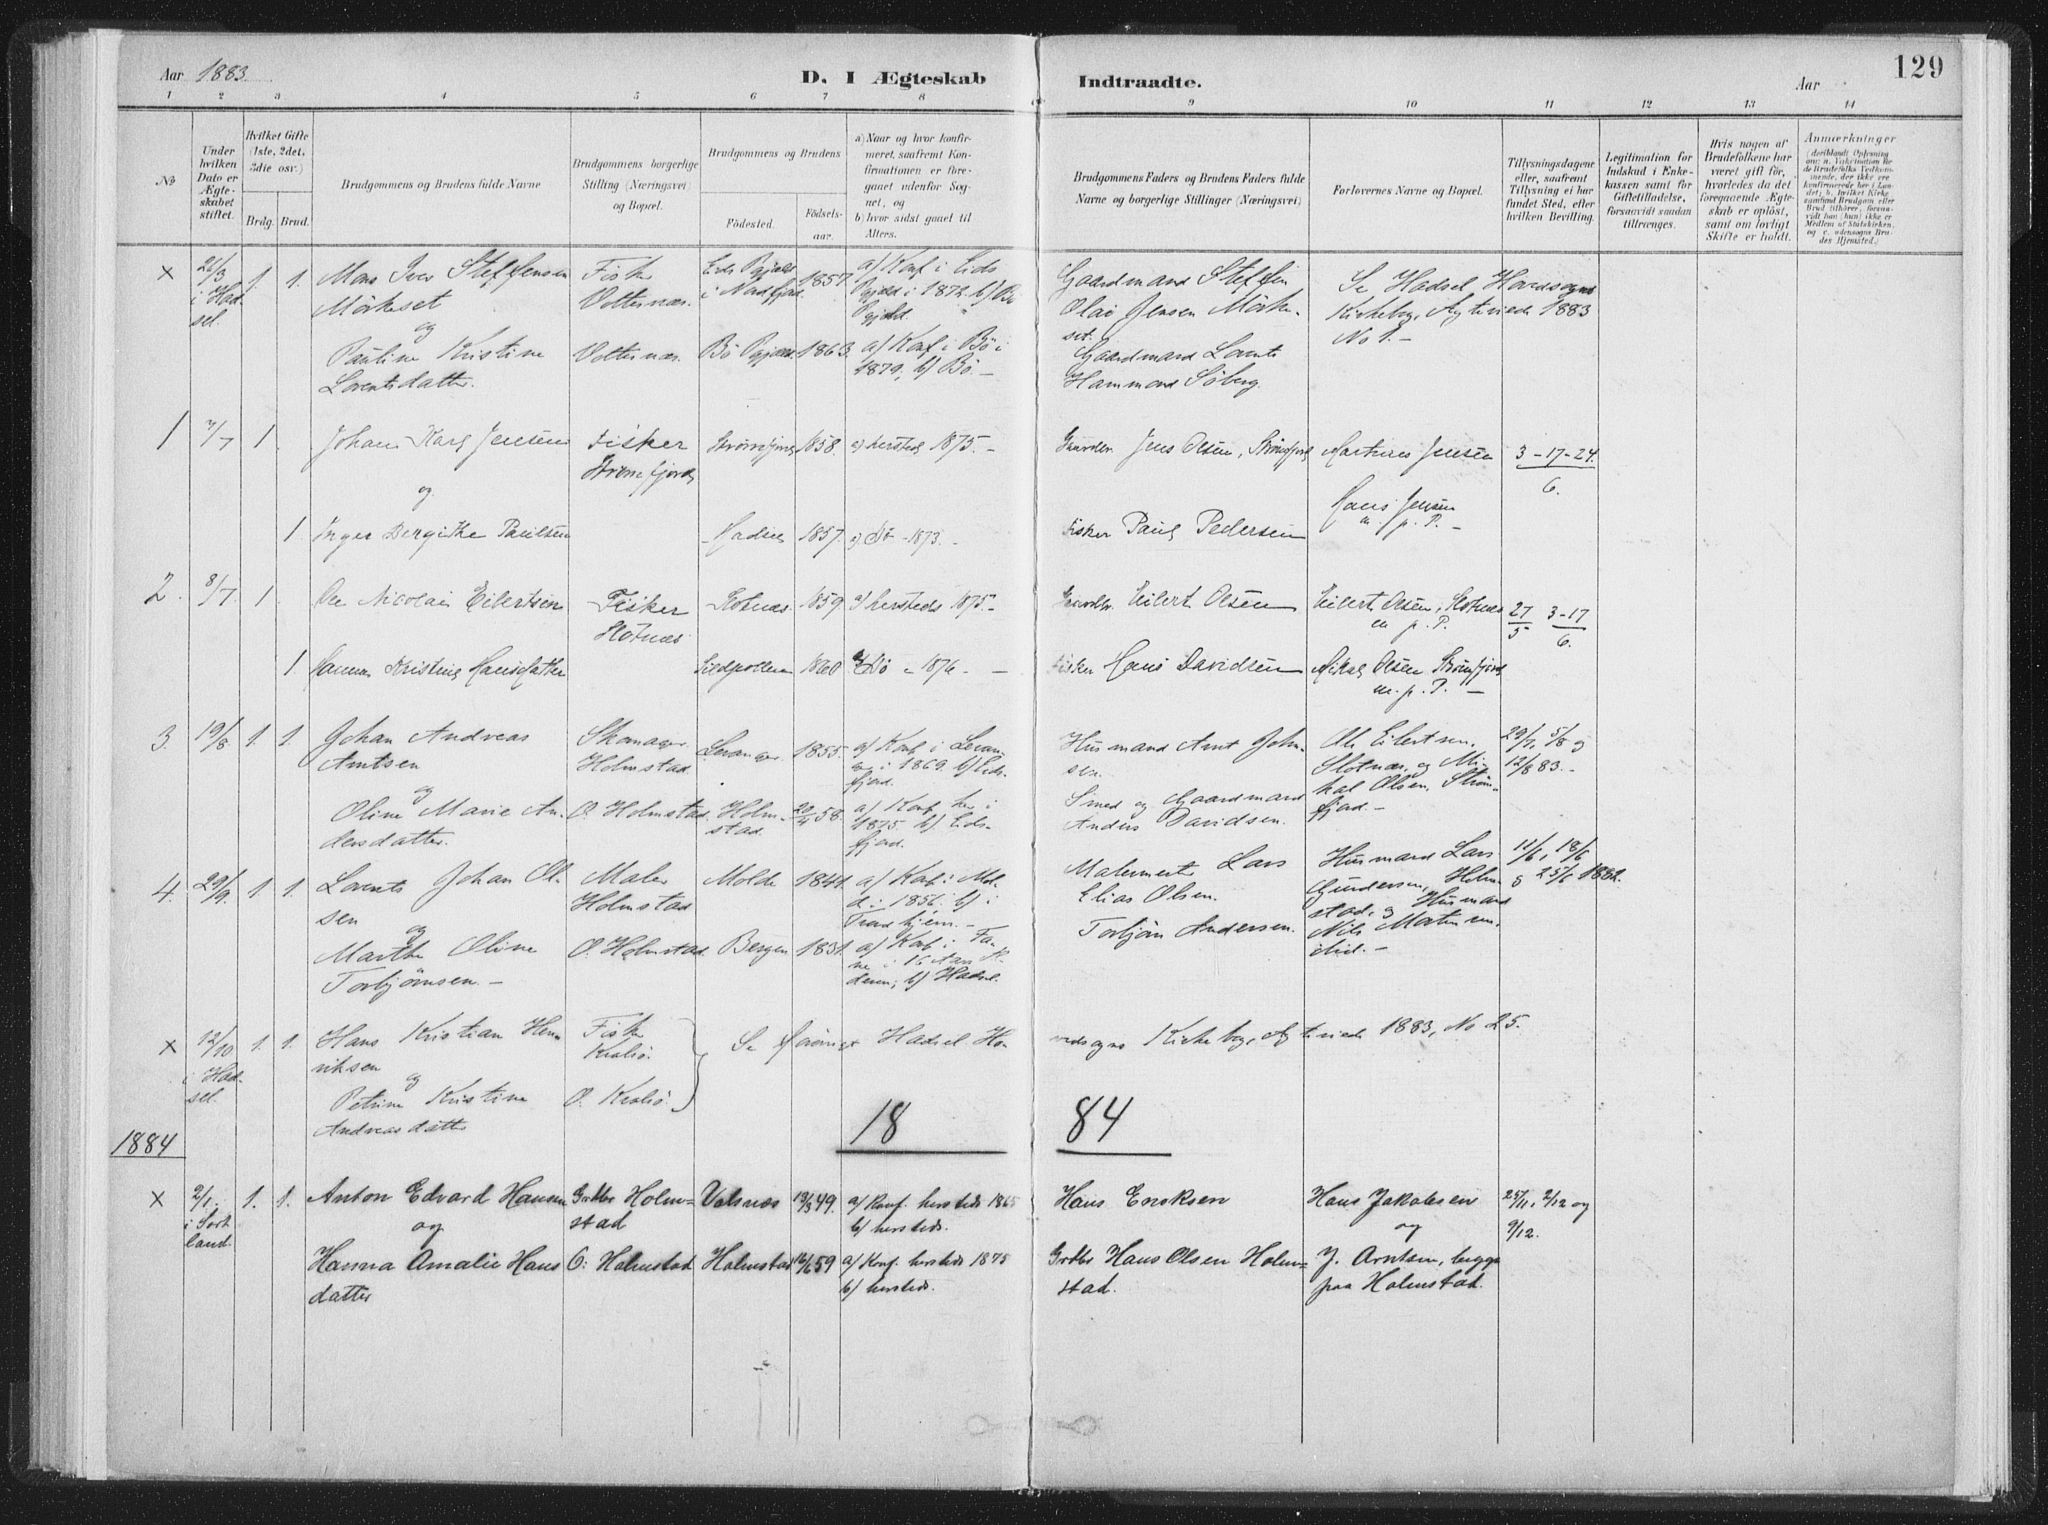 Aar 1883.
D. I Ægteskab
Indtraadte.
Aar
129
1 2 3 4 5 6 7 8 9 10 11 12 13 14
No
Under hvilken Dato er Ægteskabet stiftet.
Hvilket Gifte (1ste, 2det, 3die osv.)
Brdg. Brud.
Brudgommens og Brudens fulde Navne
Brudgommens borgerlige Stilling (Næringsvei) og Bopæl.
Brudgommens og Brudens
Födested.
Födselsaar.
a) Naar og hvor konfirmeret, saafremt Konfirmationen er foregaaet udenfor Sognet, og
b) hvor sidst gaaet til Alters.
Brudgommens Faders og Brudens Faders fulde Navne og borgerlige Stillinger (Næringsvei)
Forlovernes Navne og Bopæl.
Tillysningsdagene eller, saafremt Tillysning ei har fundet Sted, efter hvilken Bevilling.
Legitimation for Indskud i Enkekassen samt for Giftetilladelse, forsaavidt saadan tiltrænges.
Hvis nogen af Brudefolkene har været gift för, hvorledes da det foregaaende Ægteskab er oplöst, samt om lovligt Skifte er holdt.
Anmærkninger
× 21/3 i Hadsel. 1. 1. Mons Iver Steffensen Mörkeset
Fisker Votternæs.
Eids Pgjeld i Nordfjord 1857
a) Konf. i Eids Pgjeld i 1872. b) Bö Pgjeld.
Gaardmand Steffen Olai Jensen Mörkeset.
Se Hadsel Hovedsogns Kirkebog, Ægteviede 1883 No 1.-
og
Pauline Kristine Lorentsdatter.
Votternæs. Bö Pgjeld. 1863.
a) Konf. i Bö i 1879, b) Bö.-
Gaardmand Lorents Hammond Söberg.
1 7/7 1. Johan Karl Jensen
Fisker Strömfjord
Strömfjord 1858. a) hersteds 1875.-
Gaardbr. Jens Olsen, Strömfjord
Martinus Jensen
3-17-24/6.
og
Hans Jensen m. p. P. -
1 Inger Bergitke Paulsen
Hadsel 1857. a) Do -1873.-
Fisker Paul Pedersen
2. 8/7. 1 Ole Nicolai Eilertsen
Fisker Slotnæs
Slotnæs. 1859. a) hersteds 1875.-
Gaardbr. Eilert Olsen
Eilert Olsen, Slotnæs m. p. P.
27/5 3-17/6.
1 Hanna Kristine Hansdatter
Sildpollen 1860 a) Do - 1876. -
Fisker Hans Davidsen
Mikal Olsen Strömfjord m. p. P. -
3. 19/8 1. 1. Johan Andreas Arntsen
Skomager. Holmstad.
Levanger. 1855.
a) Konf. i Levanger i 1869. b) Eidsfjord.
Husmand Arnt Johnsen.
Ole Eilertsen, Slotnæs, og Mikal Olsen, Strömfjord.-
29/7, 5/8 og 12/8 83.-
og
Oline Marie Andersdatter.
O. Holmstad. Holmstad. 20/4 58.
a) Konf. her i 1875. b) Eidsfjord.
Smed og Gaardmand Anders Davidsen.
4. 29/9. 1. 1. Lorents Johan Olsen
Maler Holmstad
Molde 1841.
a) Konf. i Molde i 1856. b) i Trondhjem.-
Malermester Lars Elias Olsen.
Husmand Lars Gundersen, Holmstad, og Husmand Nils Mortensen, ibid.-
11/6, 18/6 og 25/6 1882.
og
Marthe Oline Torbjörnsen.-
O. Holmstad. Bergen 1831.
a) Konf. i Fane i 16 Aars Alderen, b) Hadsel.
Torbjörn Andersen.
× 12/10 i Hadsel. 1. 1. Hans Kristian Henriksen
Fisker Kralsö.
Se forövrigt Hadsel Hovedsogns Kirkebog, Ægteviede 1883, No 25.
og
Petrine Kristine Andreasdatter
O. Kralsö.
18 84
1884
× 2/1. i Sortland. 1. 1. Anton Edvard Hansen
Grdbr Holmstad
Valsnæs 13/3 49.
a) Konf. hersteds 1865
b) hersteds.
Hans Enoksen
Hans Jakobsen
25/11, 2/12 og 9/12.
og
Hanna Amalie Hansdatter
O: Holmstad Holmstad 16/6 59
a) Konf. hersteds 1875
b) hersteds.
Grdbr Hans Olsen Holmstad.
og
J. Arntsen, begge paa Holmstad.